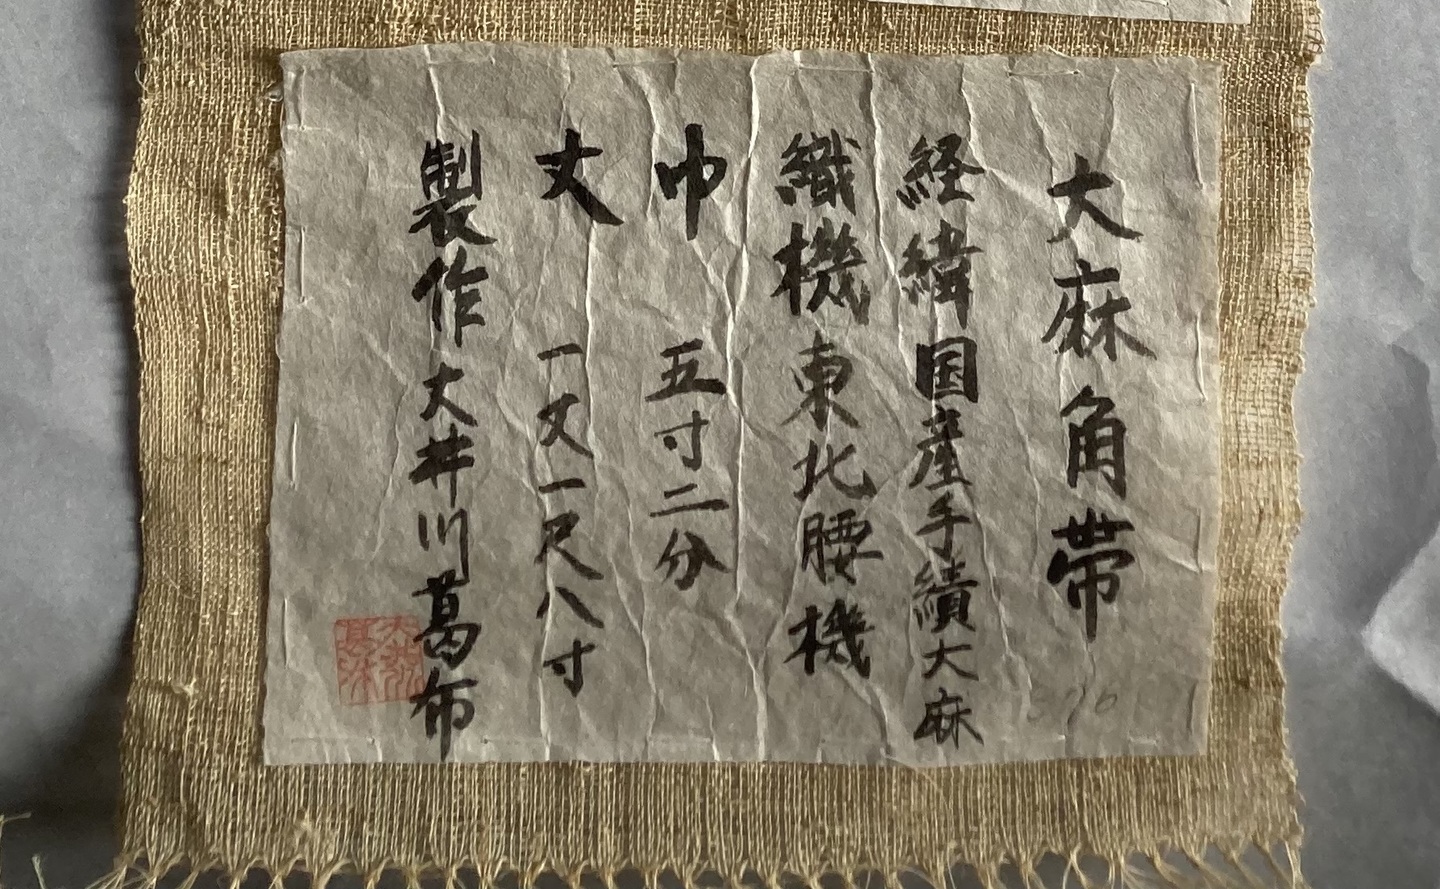 大麻角帯
経緯国産手績大麻
織機東北腰機
巾 五寸二分
丈 一丈一尺八寸
製作大井川葛布